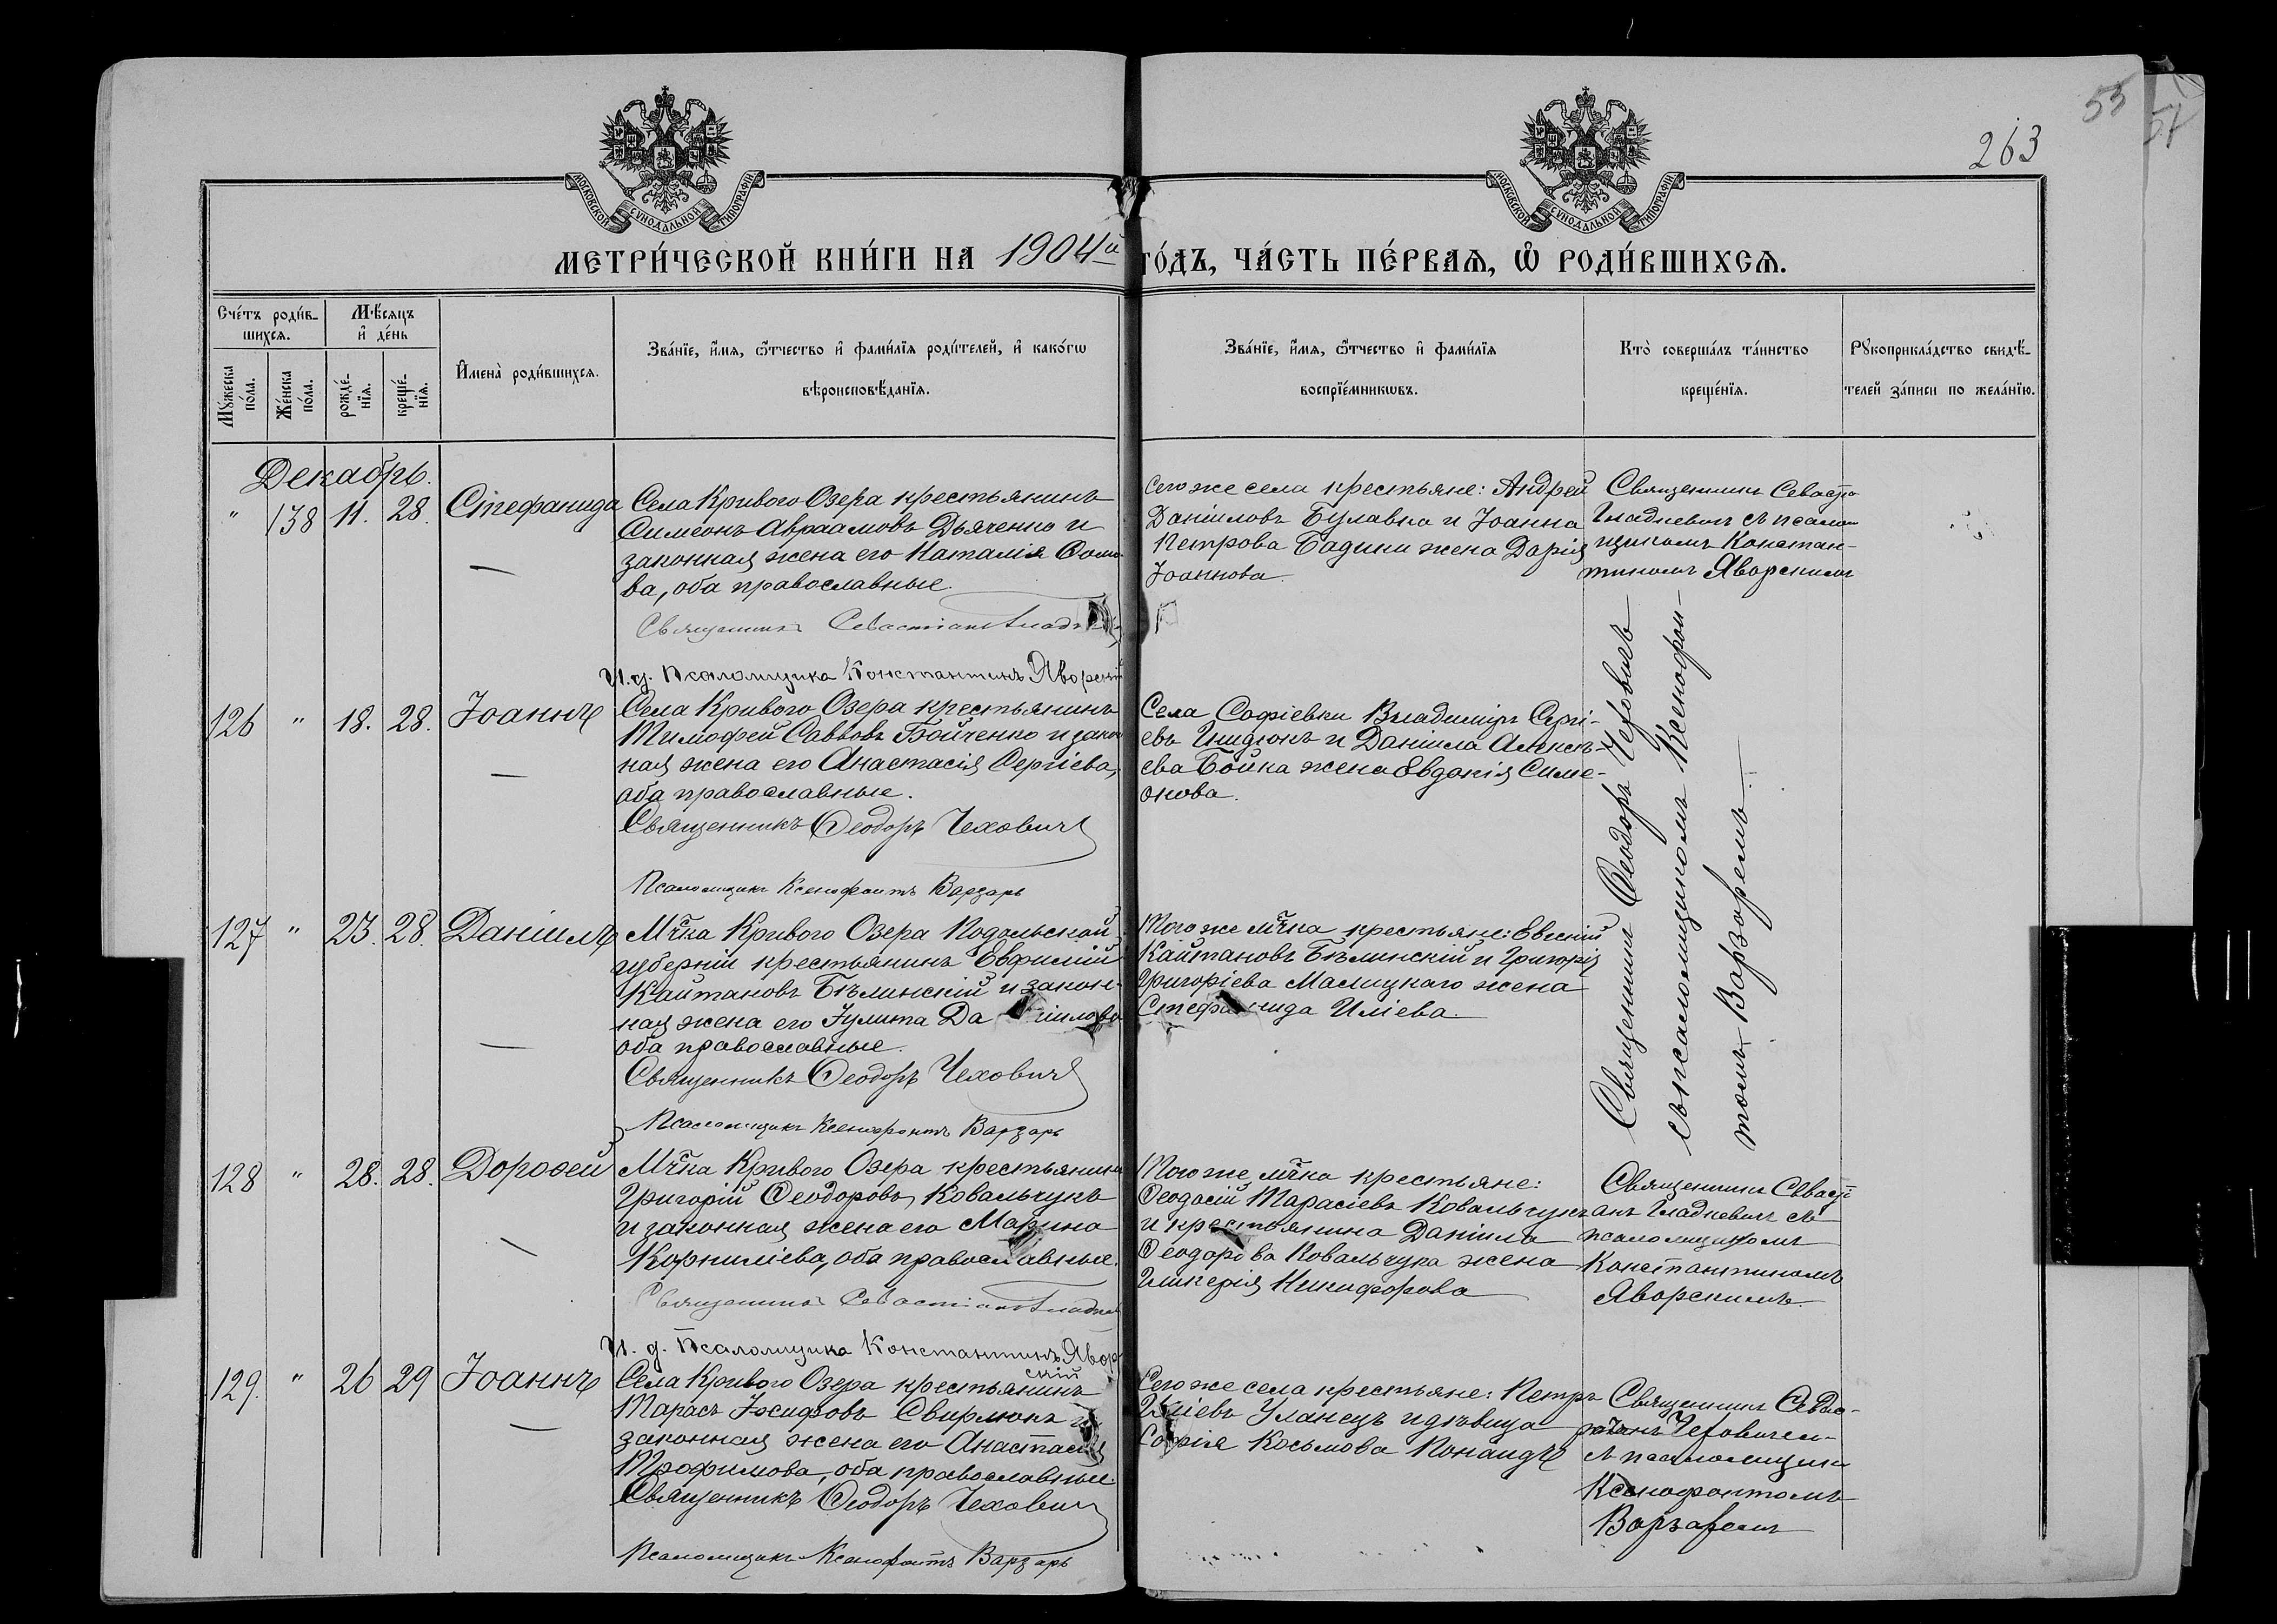 263
55
57
МОСКОВСКОЙ СѴНОДАЛЬНОЙ ТИПОГРАФІИ
МОСКОВСКОЙ СѴНОДАЛЬНОЙ ТИПОГРАФІИ
МЕТРИ́ЧЕСКОЙ КНИ́ГИ НА 1904й ГО́ДЪ, ЧА́СТЬ ПЕ́РВАѦ, Ѡ҆ РОДИ́ВШИХСѦ.
Сче́тъ роди́в-
шихсѧ.
Мꙋ́жеска по́ла.
Же́нска по́ла.
Мѣ́сѧцъ
и҆ де́нь
рожде́-
нїѧ.
креще́-
нїѧ.
И҆мена̀ роди́вшихсѧ.
Зва́нїе, и҆́мѧ, ѻ҆́тчество и҆ фами́лїѧ роди́телей, и҆ како́гѡ
вѣроисповѣ́данїѧ.
Зва́нїе, и҆́мѧ, ѻ҆́тчество и҆ фами́лїѧ
воспрїе́мникѡвъ.
Кто̀ соверша́лъ та́инство
креще́нїѧ.
Рꙋкоприкла́дство свидѣ́-
телей за́писи по жела́нїю.
Декабрь.
" 138 11. 28. Стефанида
Села Кривого Озера крестьянинъ
Симеонъ Авраамовъ Дьяченко и
законная жена его Наталія Ѳоми-
ва, оба православные.
Священникъ Севастіанъ
И. д. Псаломщика Константинъ Яворскій
Сего же села крестьяне: Андрей
Даніиловъ Булавка и Іоанна
Петрова Бадики жена Дарія
Іоаннова.
Священникъ Севастіа
Гладкевичъ съ псалом
щикомъ Констан-
тиномъ Яворскимъ
126 " 18. 28. Іоаннъ
Села Кривого Озера крестьянинъ
Тимофей Саввовъ Бойченко и закон
ная жена его Анастасія Сергіева,
оба православные.
Священникъ Ѳеодоръ Чеховичъ
Псаломщикъ Ксенофонтъ Варзарь
Села Софіевки Владиміръ Сергі-
евъ и Даніила Алексѣ-
ева Бойка жена Евдокія Симе-
онова.
Священникъ Ѳеодоръ Чеховичъ
съ псаломщикомъ Ксенофон-
томъ Варзаремъ
127 " 23. 28. Даніилъ
М-чка Кривого Озера Подольской
губерніи крестьянинъ Евфимій
Кайтановъ Бѣлинскій и закон-
ная жена его Іулита Даніилова
оба православные.
Священникъ Ѳеодоръ Чеховичъ
Псаломщикъ Ксенофонтъ Варзарь
Того же м-чка крестьяне: Евсевій
Кайтановъ Бѣлинскій и Григорія
Григоріева Малицкаго жена
Стефанида Иліева.
128 " 28. 28. Дороѳей
М-чка Кривого Озера крестьянинъ
Григорій Ѳеодоровъ Ковальчукъ
и законная жена его Марина
Корниліева, оба православные.
Священникъ Севастіанъ
И. д. Псаломщика Константинъ Явор-
скій
Того же м-чка крестьяне:
Ѳеодосій Тарасіевъ Ковальчукъ
и крестьянина Даніила
Ѳеодорова Ковальчука жена
Гликерія Никифорова
Священникъ Севасті
анъ Гладкевичъ съ
псаломщикомъ
Константиномъ
Яворскимъ.
129. " 26 29 Іоаннъ
Села Кривого Озера крестьянинъ
Тарасъ Іосифовъ Свирлюкъ и
законная жена его Анастасія
Трофимова, оба православные.
Священникъ Ѳеодоръ Чеховичъ
Псаломщикъ Ксенофонтъ Варзарь
Сего же села крестьяне: Петръ
Иліевъ Уланецъ и дѣвица
Софія Косьмова
Священникъ
Чеховичем-
съ псаломщикомъ
Ксенофонтомъ
Варзаремъ